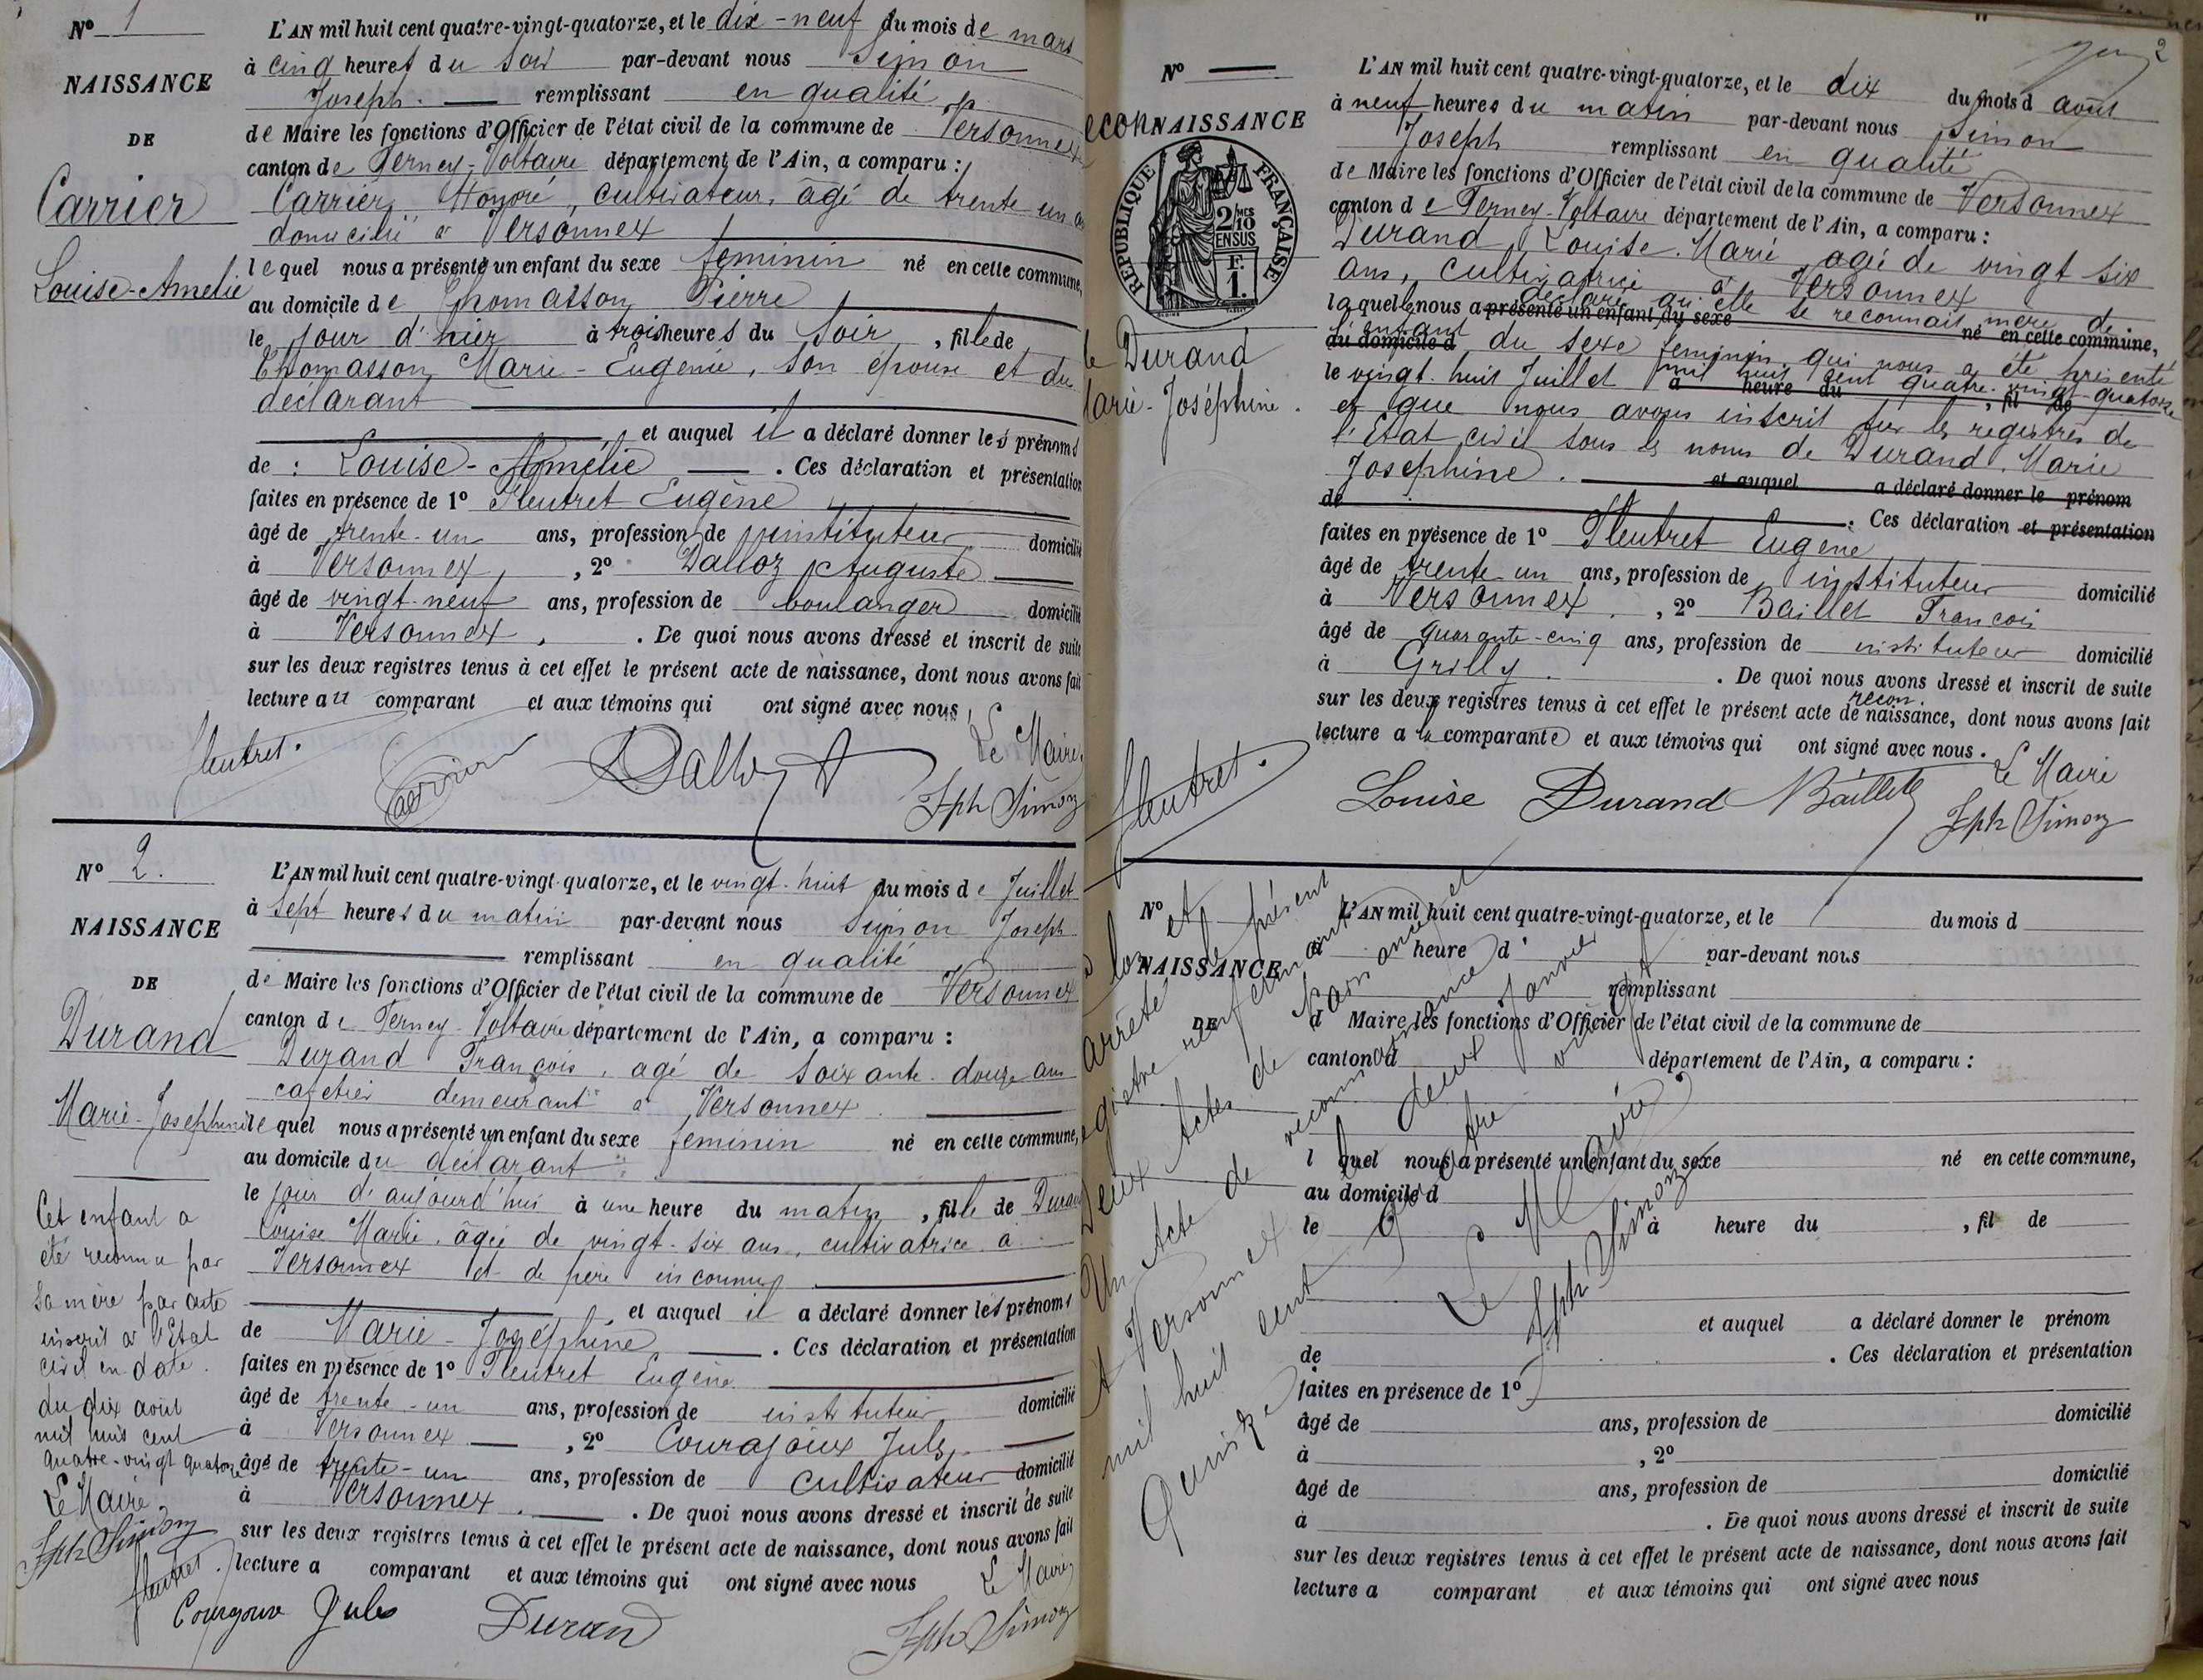 Nº 1
NAISSANCE
DE
Carrier
Louise-Amélie
L'AN mil huit cent quatre-vingt-quatorze, et le dix-neuf du mois de mars
à cinq heures du soir par-devant nous Simon
Joseph. remplissant en qualité
de Maire les fonctions d'Officier de l'état civil de la commune de Versonnex
canton de Ferney-Voltaire département de l'Ain, a comparu :
Carrier, Honoré, cultivateur, âgé de trente un ans
domicilié à Versonnex
lequel nous a présenté un enfant du sexe féminin né en cette commune,
au domicile de Thomasson Pierre
le jour d'hier à trois heures du soir, fille de
Thomasson Marie-Eugénie, son épouse et du
déclarant
et auquel il a déclaré donner les prénoms
de : Louise-Amélie. Ces déclaration et présentation
faites en présence de 1º Fleutret Eugène
âgé de trente-un ans, profession de instituteur domicilié
à Versonnex, 2º Dalloz Auguste
âgé de vingt-neuf ans, profession de boulanger domicilié
à Versonnex, . De quoi nous avons dressé et inscrit de suite
sur les deux registres tenus à cet effet le présent acte de naissance, dont nous avons fait
lecture au comparant et aux témoins qui ont signé avec nous,
Le Maire,
Fleutret. Carrier Dalloz A Jph Simon
Nº 2.
NAISSANCE
DE
Durand
Marie-Joséphine
Cet enfant a
été reconnu par
sa mère par acte
inscrit à l'Etat
civil en date
du dix août
mil huit cent
quatre-vingt quatorze
Le Maire,
Jph Simon
L'AN mil huit cent quatre-vingt-quatorze, et le vingt-huit du mois de Juillet
à sept heures du matin par-devant nous Simon Joseph
remplissant en qualité
de Maire les fonctions d'Officier de l'état civil de la commune de Versonnex
canton de Ferney-Voltaire département de l'Ain, a comparu :
Durand François, agé de soixante-douze ans
cafetier demeurant à Versonnex.
lequel nous a présenté un enfant du sexe féminin né en cette commune,
au domicile du déclarant
le jour d'aujourd'hui à une heure du matin, fille de Durand
Louise Marie, âgée de vingt-six ans, cultivatrice à
Versonnex et de père inconnu
et auquel il a déclaré donner les prénoms
de Marie-Joséphine. Ces déclaration et présentation
faites en présence de 1º Fleutret Eugène
âgé de trente-un ans, profession de instituteur domicilié
à Versonnex, 2º Courajoux Jules
âgé de trente-un ans, profession de cultivateur domicilié
à Versonnex. De quoi nous avons dressé et inscrit de suite
sur les deux registres tenus à cet effet le présent acte de naissance, dont nous avons fait
lecture a comparant et aux témoins qui ont signé avec nous
Le Maire
Fleutret. Jules Durand Jph Simon
2
Nº
reconNAISSANCE
RÉPUBLIQUE FRANÇAISE
2/10
EN SUS
F.
1.
de Durand
Marie-Joséphine.
L'AN mil huit cent quatre-vingt-quatorze, et le dix du mois d août
à neuf heures du matin par-devant nous Simon
Joseph remplissant en qualité
de Maire les fonctions d'Officier de l'état civil de la commune de Versonnex
canton de Ferney-Voltaire département de l'Ain, a comparu :
Durand Louise-Marie, agée de vingt six
ans, cultivatrice à Versonnex
laquelle nous a présenté un enfant du sexe déclaré qu'elle se reconnait mère de
l'enfant né en cette commune,
au domicile d du sexe féminin qui nous a été présenté
le vingt-huit Juillet mil huit cent quatre-vingt-quatorze
à heure du , fil de
et que nous avons inscrit sur les registres de
l'Etat civil sous les noms de Durand, Marie
Joséphine. et auquel a déclaré donner le prénom
de : Ces déclaration et présentation
faites en présence de 1º Fleutret Eugène
âgé de trente un ans, profession de instituteur domicilié
à Versonnex, 2º Baillet François
âgé de quarante-cinq ans, profession de instituteur domicilié
à Grilly. . De quoi nous avons dressé et inscrit de suite
recon
sur les deux registres tenus à cet effet le présent acte de naissance, dont nous avons fait
lecture a la comparante et aux témoins qui ont signé avec nous.
Le Maire
Fleutret. Louise Durand Baillet Jph Simon
Nº
NAISSANCE
DE
L'AN mil huit cent quatre-vingt-quatorze, et le du mois d
à heure d par-devant nous
remplissant
d Maire les fonctions d'Officier de l'état civil de la commune de
canton d département de l'Ain, a comparu :
l quel nous a présenté un enfant du sexe né en cette commune,
au domicile d
le à heure du , fil de
et auquel a déclaré donner le prénom
de . Ces déclaration et présentation
faites en présence de 1º
âgé de ans, profession de domicilié
à , 2º
âgé de ans, profession de domicilié
à . De quoi nous avons dressé et inscrit de suite
sur les deux registres tenus à cet effet le présent acte de naissance, dont nous avons fait
lecture a comparant et aux témoins qui ont signé avec nous
Clos et
arrêté le présent
registre renfermant
Deux Actes de Naissance et
Un Acte de reconnaissance
A Versonnex le deux Janvier
mil huit cent quatre vingt
Quinze
Le Maire
Jph Simon